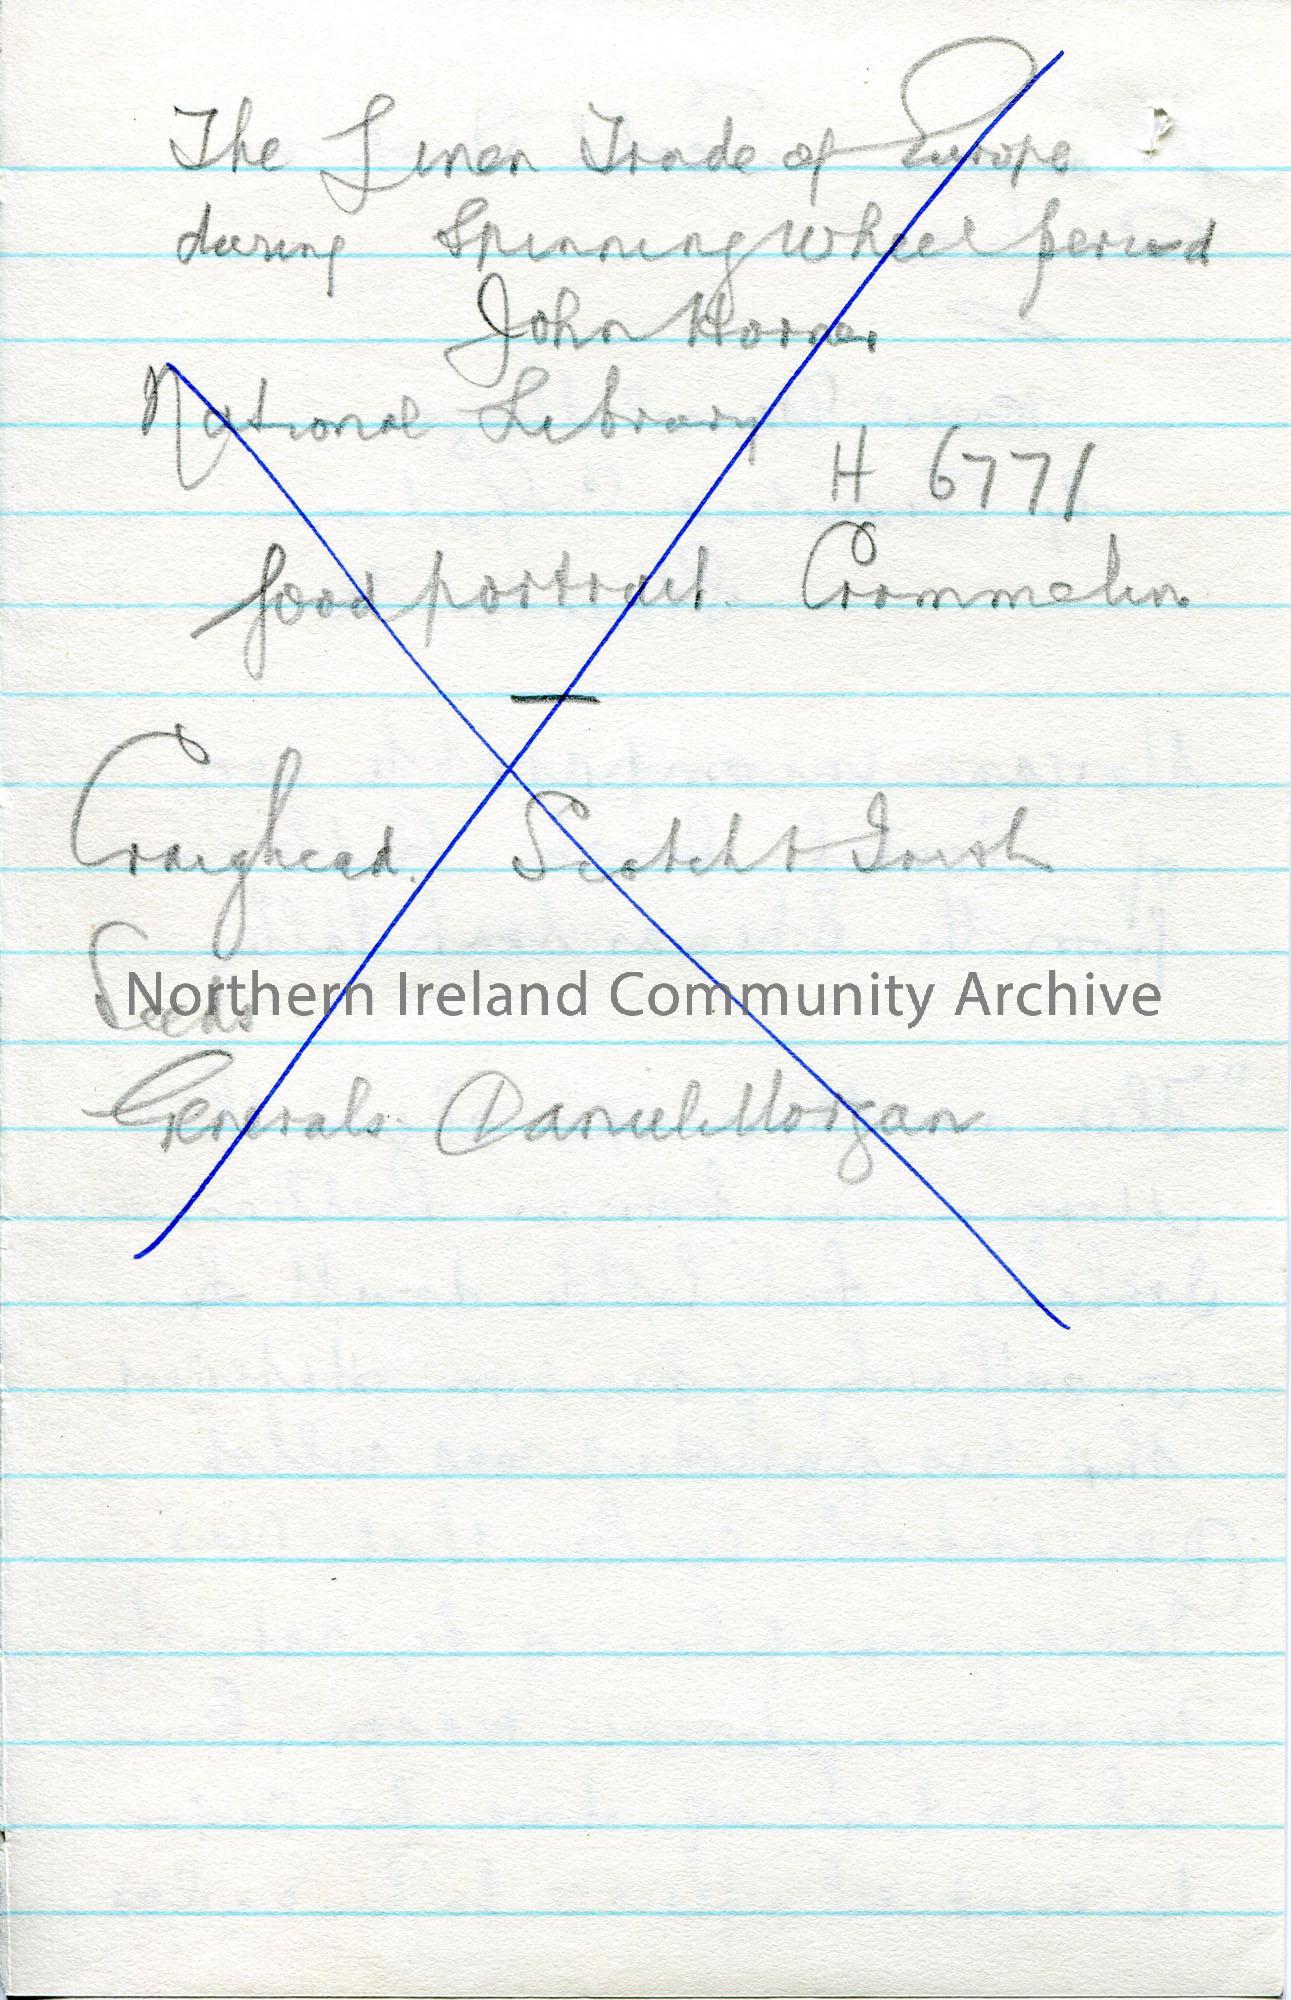 The Linen Trade of Europe
during Spinning Wheel period
John Horner
National Library
H 6771
good portrait. Crommelin
Craighead. Scotch & Irish
Seeds
Northern Ireland Community Archive
Generals. Daniel Morgan